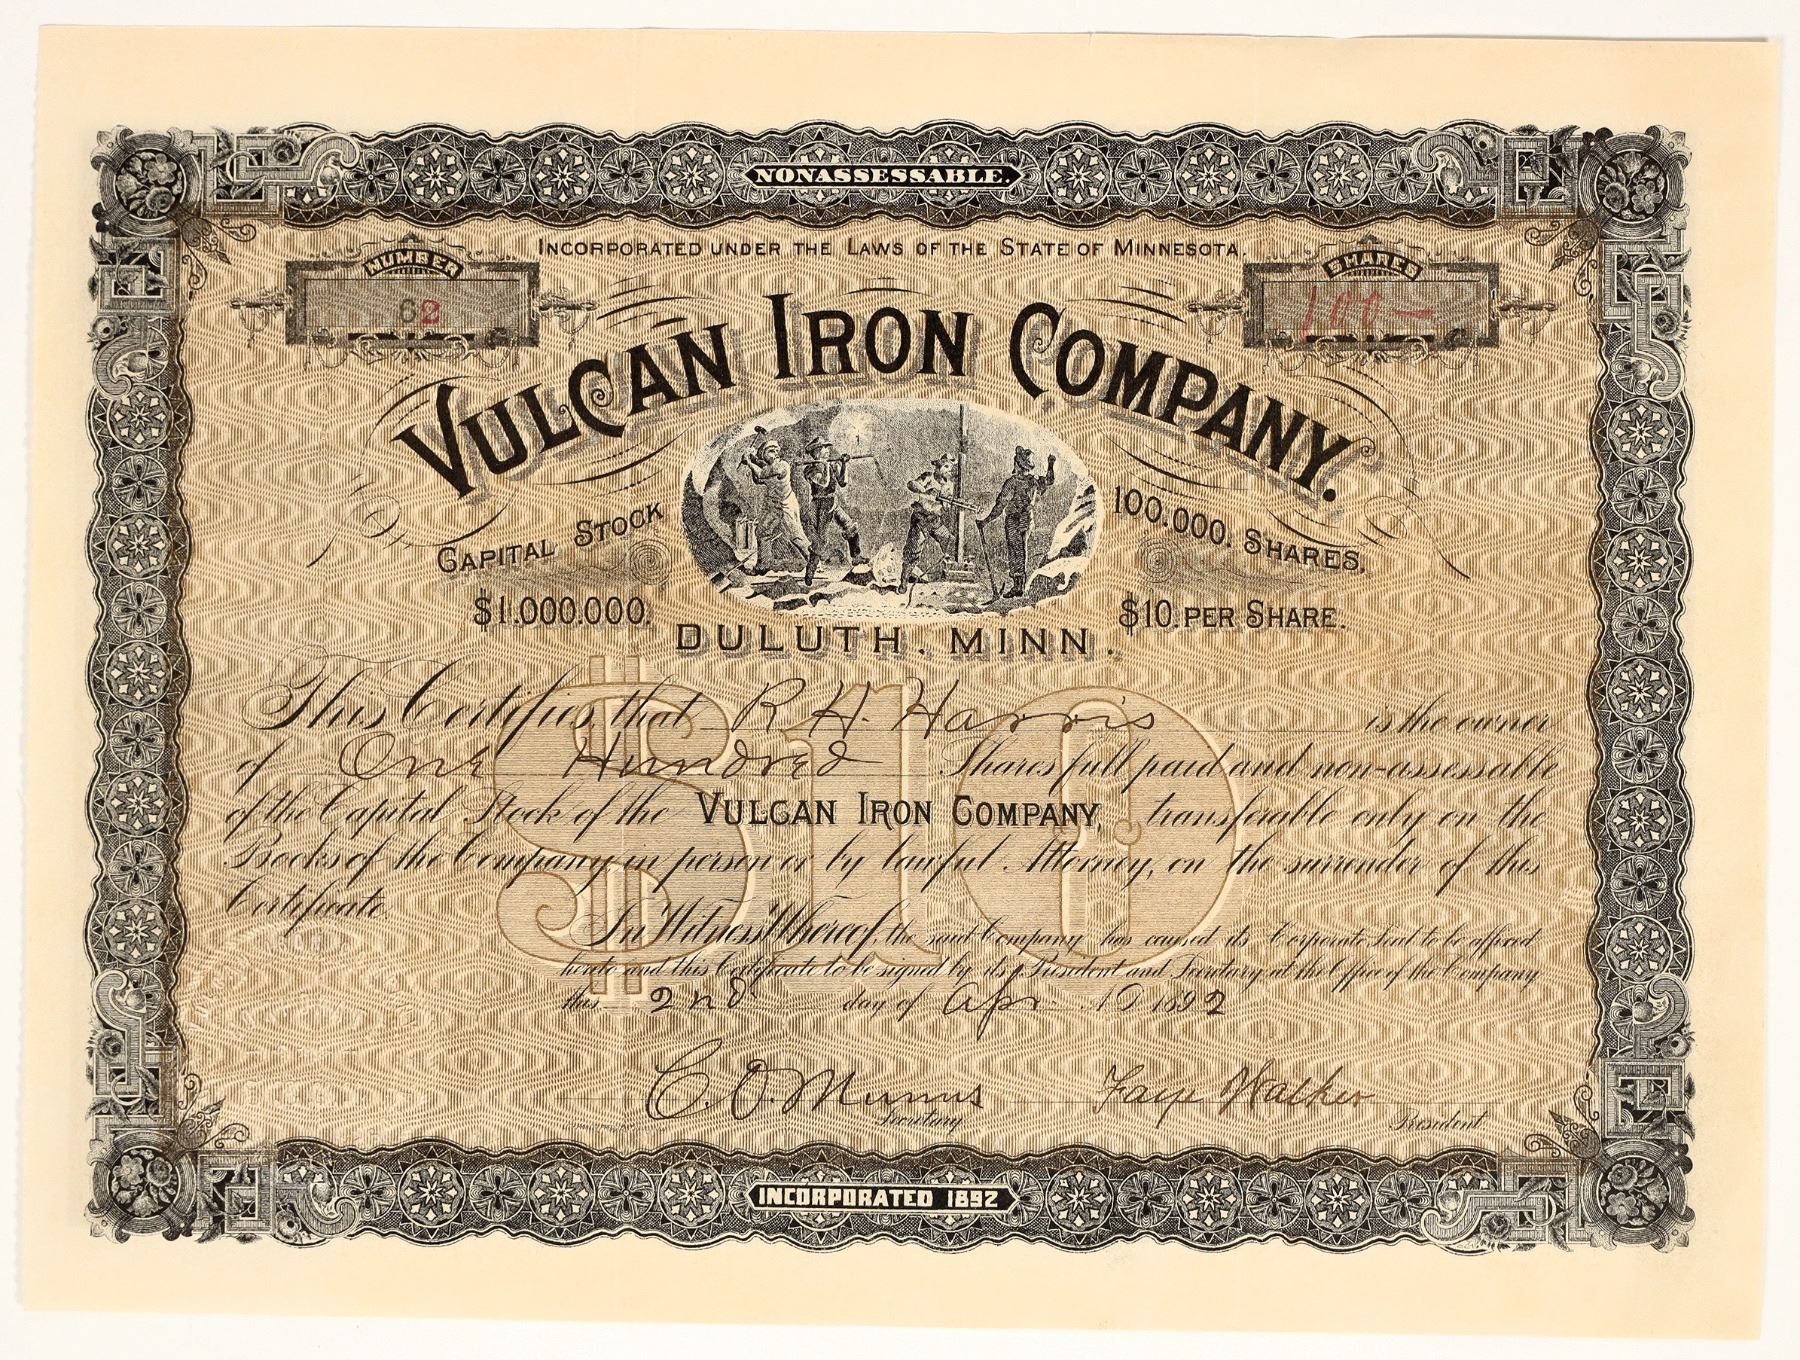 NONASSESSABLE.
INCORPORATED UNDER THE LAWS OF THE STATE OF MINNESOTA.
NUMBER
62
SHARES
100—
VULCAN IRON COMPANY.
CAPITAL STOCK
$1.000.000.
100.000. SHARES.
$10. PER SHARE.
DULUTH, MINN.
$10
This Certifies that R. H. Harris is the owner
of One Hundred Shares full paid and non-assessable
of the Capital Stock of the VULCAN IRON COMPANY, transferable only on the
Books of the Company, in person or by lawful Attorney, on the surrender of this
Certificate.
In Witness Whereof, the said Company has caused its Corporate Seal to be affixed
hereto and this Certificate to be signed by its President and Secretary at the Office of the Company
this 2nd day of Apr A.D. 1892
C. O. Nunns
Secretary
Faye Walker
President
INCORPORATED 1892